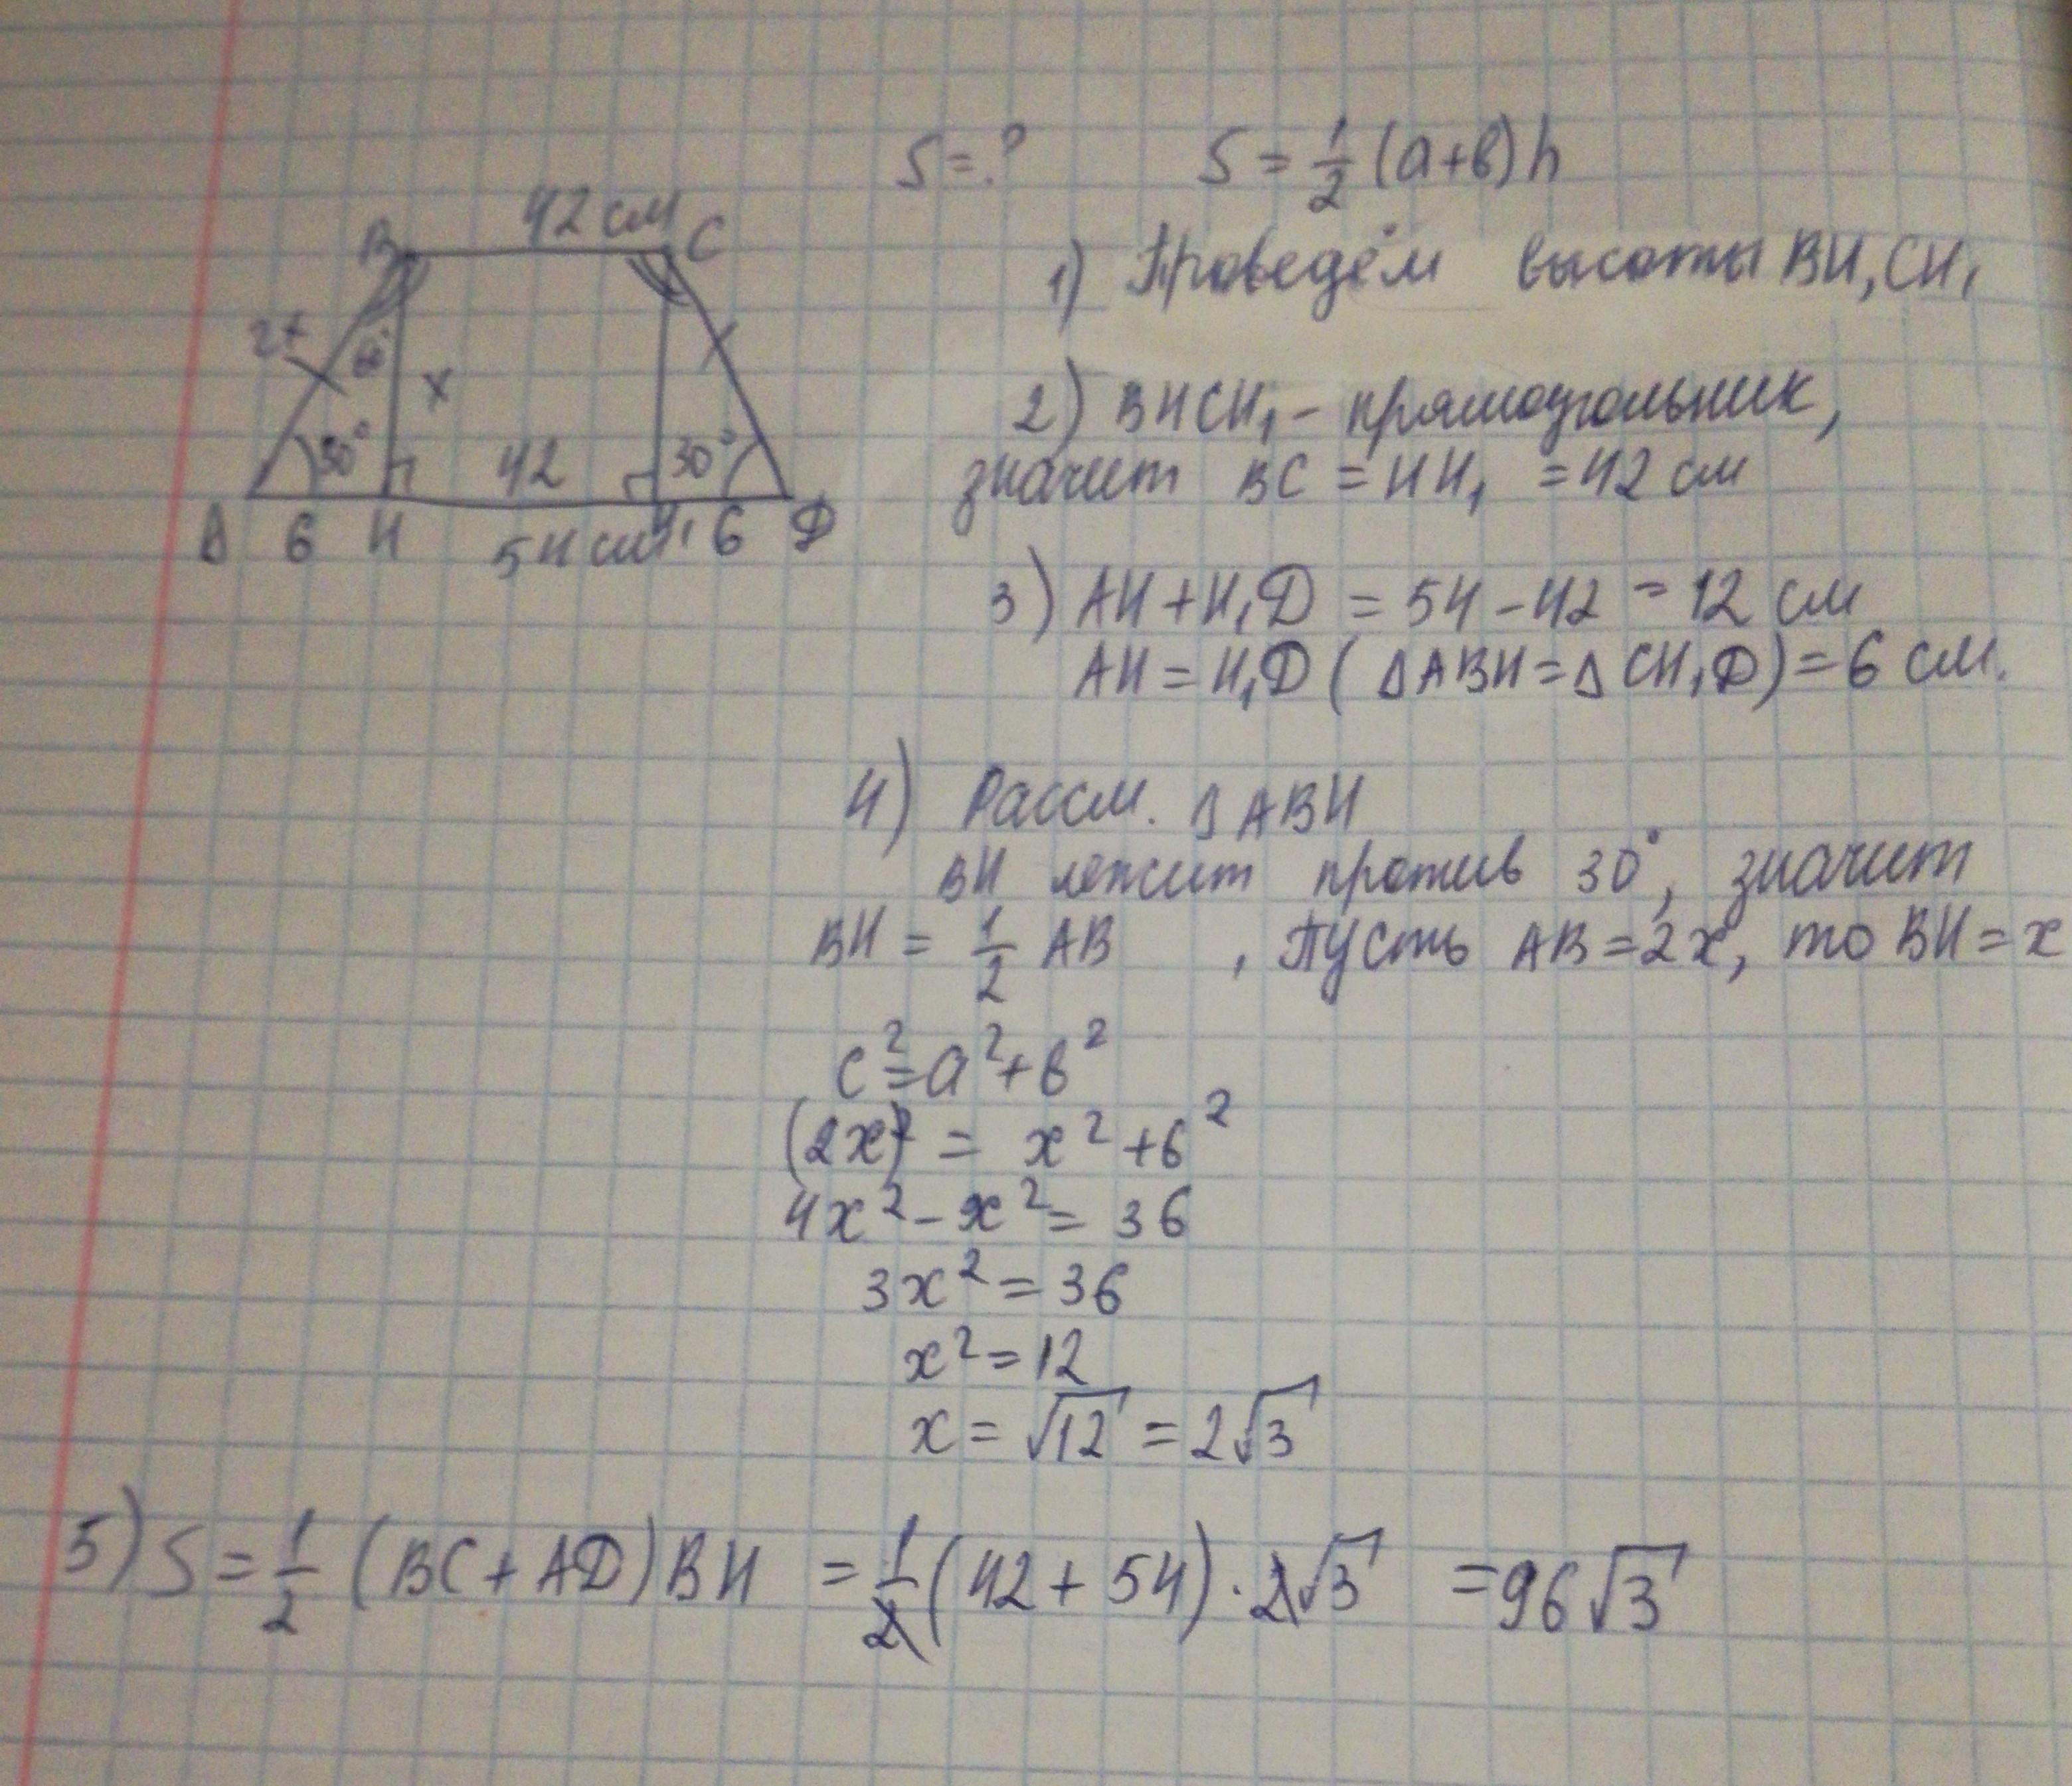 S = ?
S = 1/2 (a+в)h
42 см
B
C
2x
60°
x
30°
42
30°
A 6 H 54 см H₁ 6 D
1) Проведём высоты BH, CH₁
2) BHCH₁ – прямоугольник,
значит BC = HH₁ = 42 см
3) AH + H₁D = 54 – 42 = 12 см
AH = H₁D (△ABH = △CH₁D) = 6 см.
4) Рассм. △ABH
BH лежит против 30°, значит
BH = 1/2 AB , Пусть AB = 2x, то BH = x
c² = a² + в²
(2x)² = x² + 6²
4x² – x² = 36
3x² = 36
x² = 12
x = √12 = 2√3
5) S = 1/2 (BC + AD) BH = 1/2 (42 + 54) · 2√3 = 96√3